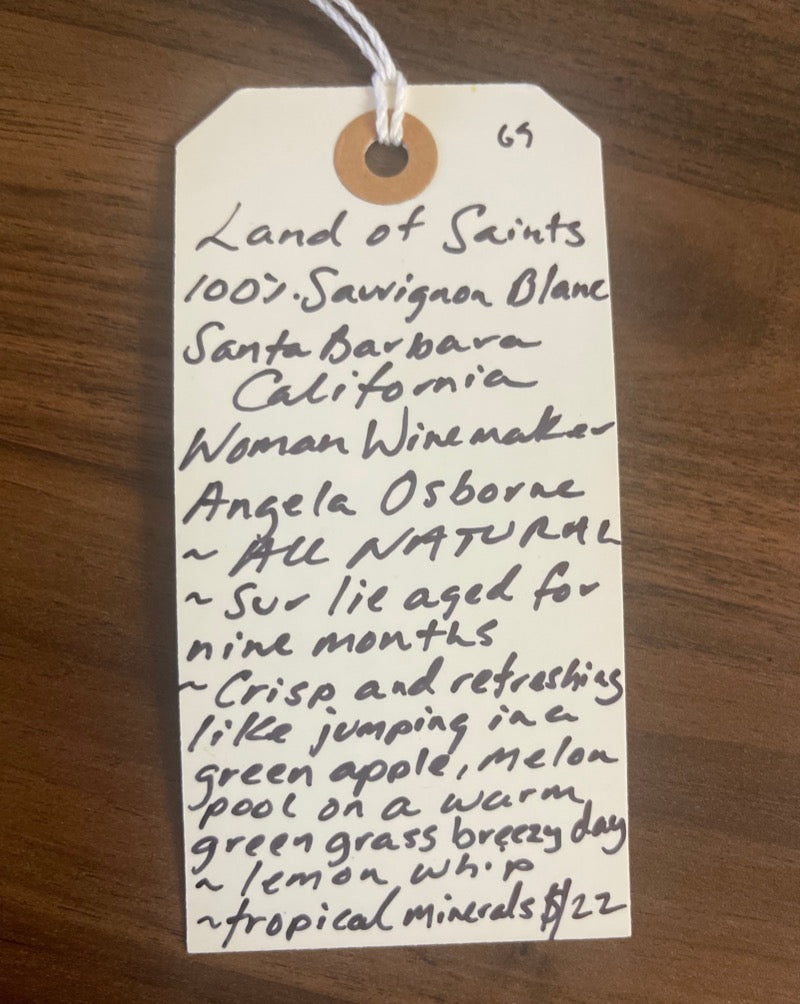 69
Land of Saints
100% Sauvignon Blanc
Santa Barbara
California
Woman Winemaker
Angela Osborne
~ ALL NATURAL
~ Sur lie aged for
nine months
~ Crisp and refreshing
like jumping in a
green apple, melon
pool on a warm
green grass breezy day
~ lemon whip
~ tropical minerals $22